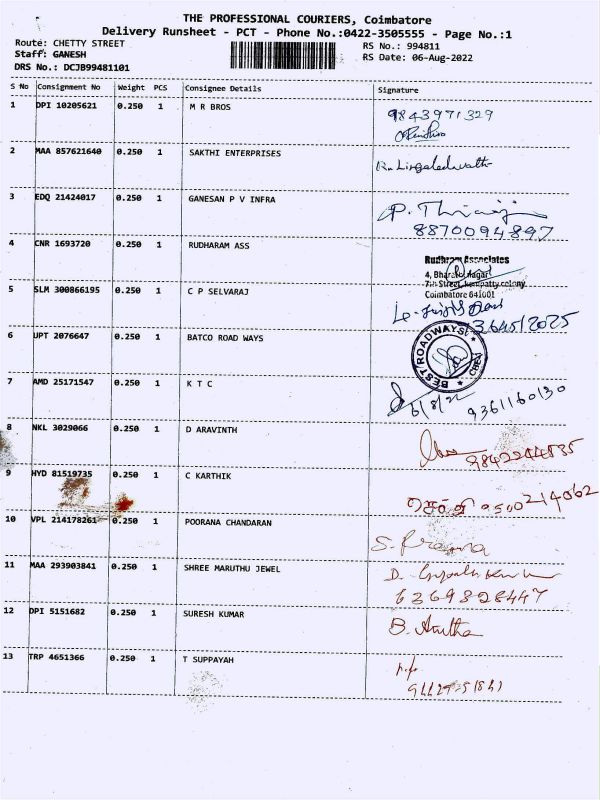 THE PROFESSIONAL COURIERS, Coimbatore
Delivery Runsheet - PCT - Phone No.:0422-3505555 - Page No.:1
Route: CHETTY STREET
RS No.: 994811
Staff: GANESH
RS Date: 06-Aug-2022
DRS No.: DCJB99481101
S No Consignment No Weight PCS Consignee Details Signature
1 DPI 10205621 0.250 1 M R BROS 9843971329
2 MAA 857621640 0.250 1 SAKTHI ENTERPRISES
3 EDQ 21424017 0.250 1 GANESAN P V INFRA
8870094897
4 CNR 1693720 0.250 1 RUDHARAM ASS
Rudhram Associates
4, Bharathi Nagar
7th Street, colony
Coimbatore 641001
5 SLM 300866195 0.250 1 C P SELVARAJ
6 UPT 2076647 0.250 1 BATCO ROAD WAYS
BEST ROADWAYS CBE
7 AMD 25171547 0.250 1 K T C 6/8/22 9361160130
8 NKL 3029066 0.250 1 D ARAVINTH
9 HYD 81519735 0.250 1 C KARTHIK 9500214062
10 VPL 214178261 0.250 1 POORANA CHANDARAN
S. Prema
11 MAA 293903841 0.250 1 SHREE MARUTHU JEWEL
6369828447
12 DPI 5151682 0.250 1 SURESH KUMAR B. Anitha
13 TRP 4651366 0.250 1 T SUPPAYAH